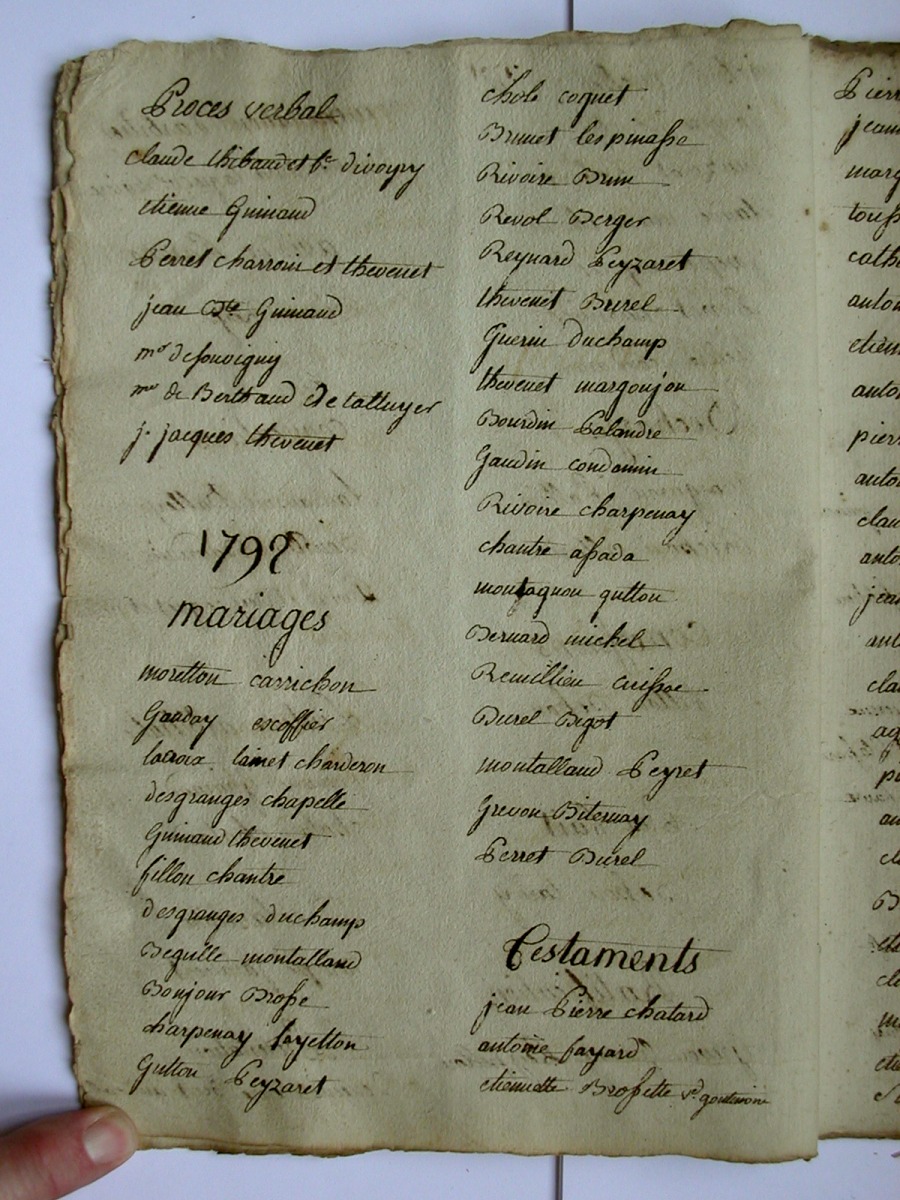 Proces verbal
claude thibaud et fe. divoyry
etienne Guinand
Perret charroin et thevenet
jean Bte Guinand
mr de souvigny
mr de Berthaud de talluyer
j. jacques thevenet
1792
mariages
moretton carrichon
Gauday escoffier
lacroix lainet charderon
desgranges chapelle
Guinand thevenet
fillon chantre
desgranges duchamp
Begulle montalland
Bonjour Brosse
charpenay fayetton
Gutton Peyzaret
chol coquet
Brunet lespinasse
Rivoire Brun
Revol Berger
Reynard Peyzaret
thevenet Burel
Guerin duchamp
thevenet margoujon
Bourdin Palandre
Gaudin condamin
Rivoire charpenay
chantre assada
montagnon gutton
Bernard michel
Remillieu
Burel Bigot
montalland Peyret
Grevon Biternay
Perret Burel
Testaments
jean Pierre chatard
antoine fayard
etiennette Brossette ve
jean
anton
etien
anton
pierr
anton
clau
anto
jean
ant
cla